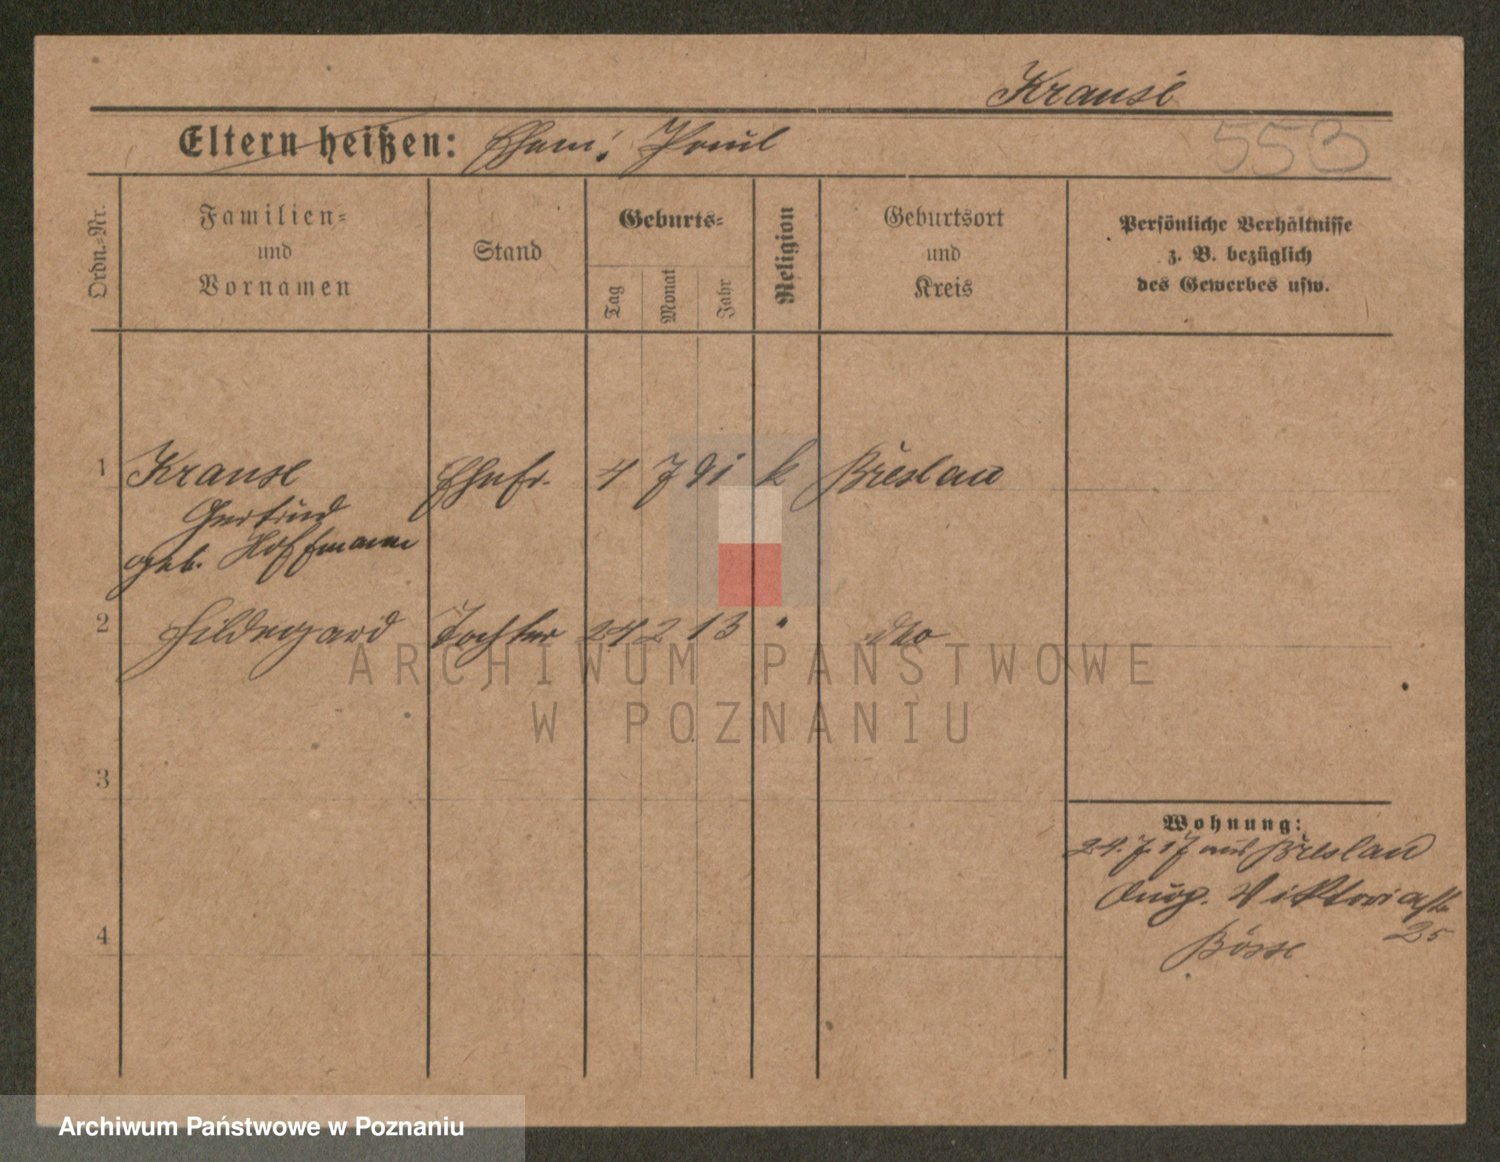 Krause
553
Eltern heißen: Ehem: Paul
Ordn.-Nr.
Familien-
und
Vornamen
Stand
Geburts-
Tag
Monat
Jahr
Religion
Geburtsort
und
Kreis
Persönliche Verhältnisse
z. B. bezüglich
des Gewerbes usw.
1 Krause Ehefr. 4 7 91 k Breslau
Gertrud
geb. Hoffmann
2 Hildegard Tochter 24 2 13 " dto
ARCHIWUM PAŃSTWOWE
W POZNANIU
3
Wohnung:
24. 7. 17 aus Breslau
Aug. Viktoriastr
25
4
Archiwum Państwowe w Poznaniu